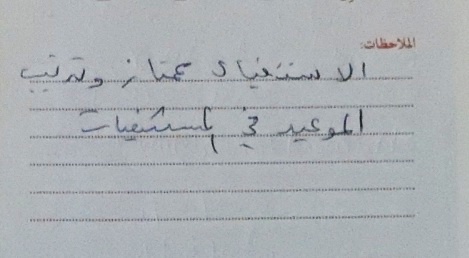 الملاحظات:
الاستقبال ممتاز وترتيب
الموعيد في المستشفيات